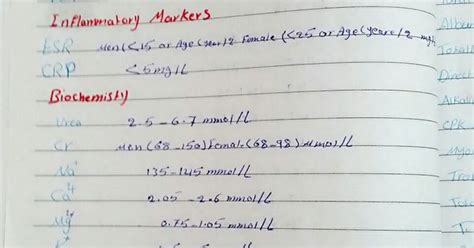 Inflammatory Markers
ESR Men (<15 or Age (year/2 Female (<25 or Age (years/2
CRP <5mg/L
Biochemisty
Urea 2.5 - 6.7 mmol/L
Cr Men (68 - 150) Female (68-98)
Na⁺ 135-145 mmol/L
Ca²⁺ 2.05 - 2.6 mmol/L
Mg²⁺ 0.75-1.05 mmol/L
Albu
Total
Direct
Alkal
CPK
Myo